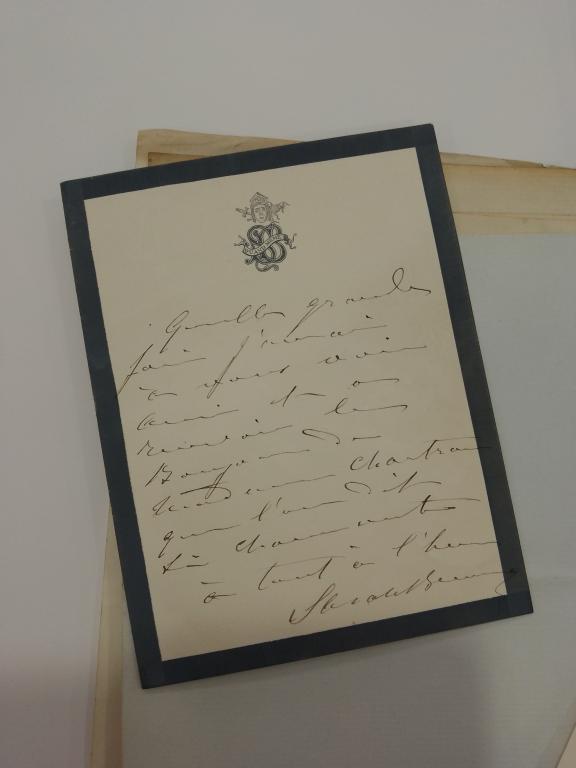 QUAND MÊME
Quelle grande
joie j'aurai
à vous voir
ami et à
recevoir les
Bonjour de
Madame Chartran
que l'on dit
si charmante
à tout à l'heure
Sarah Bernhardt